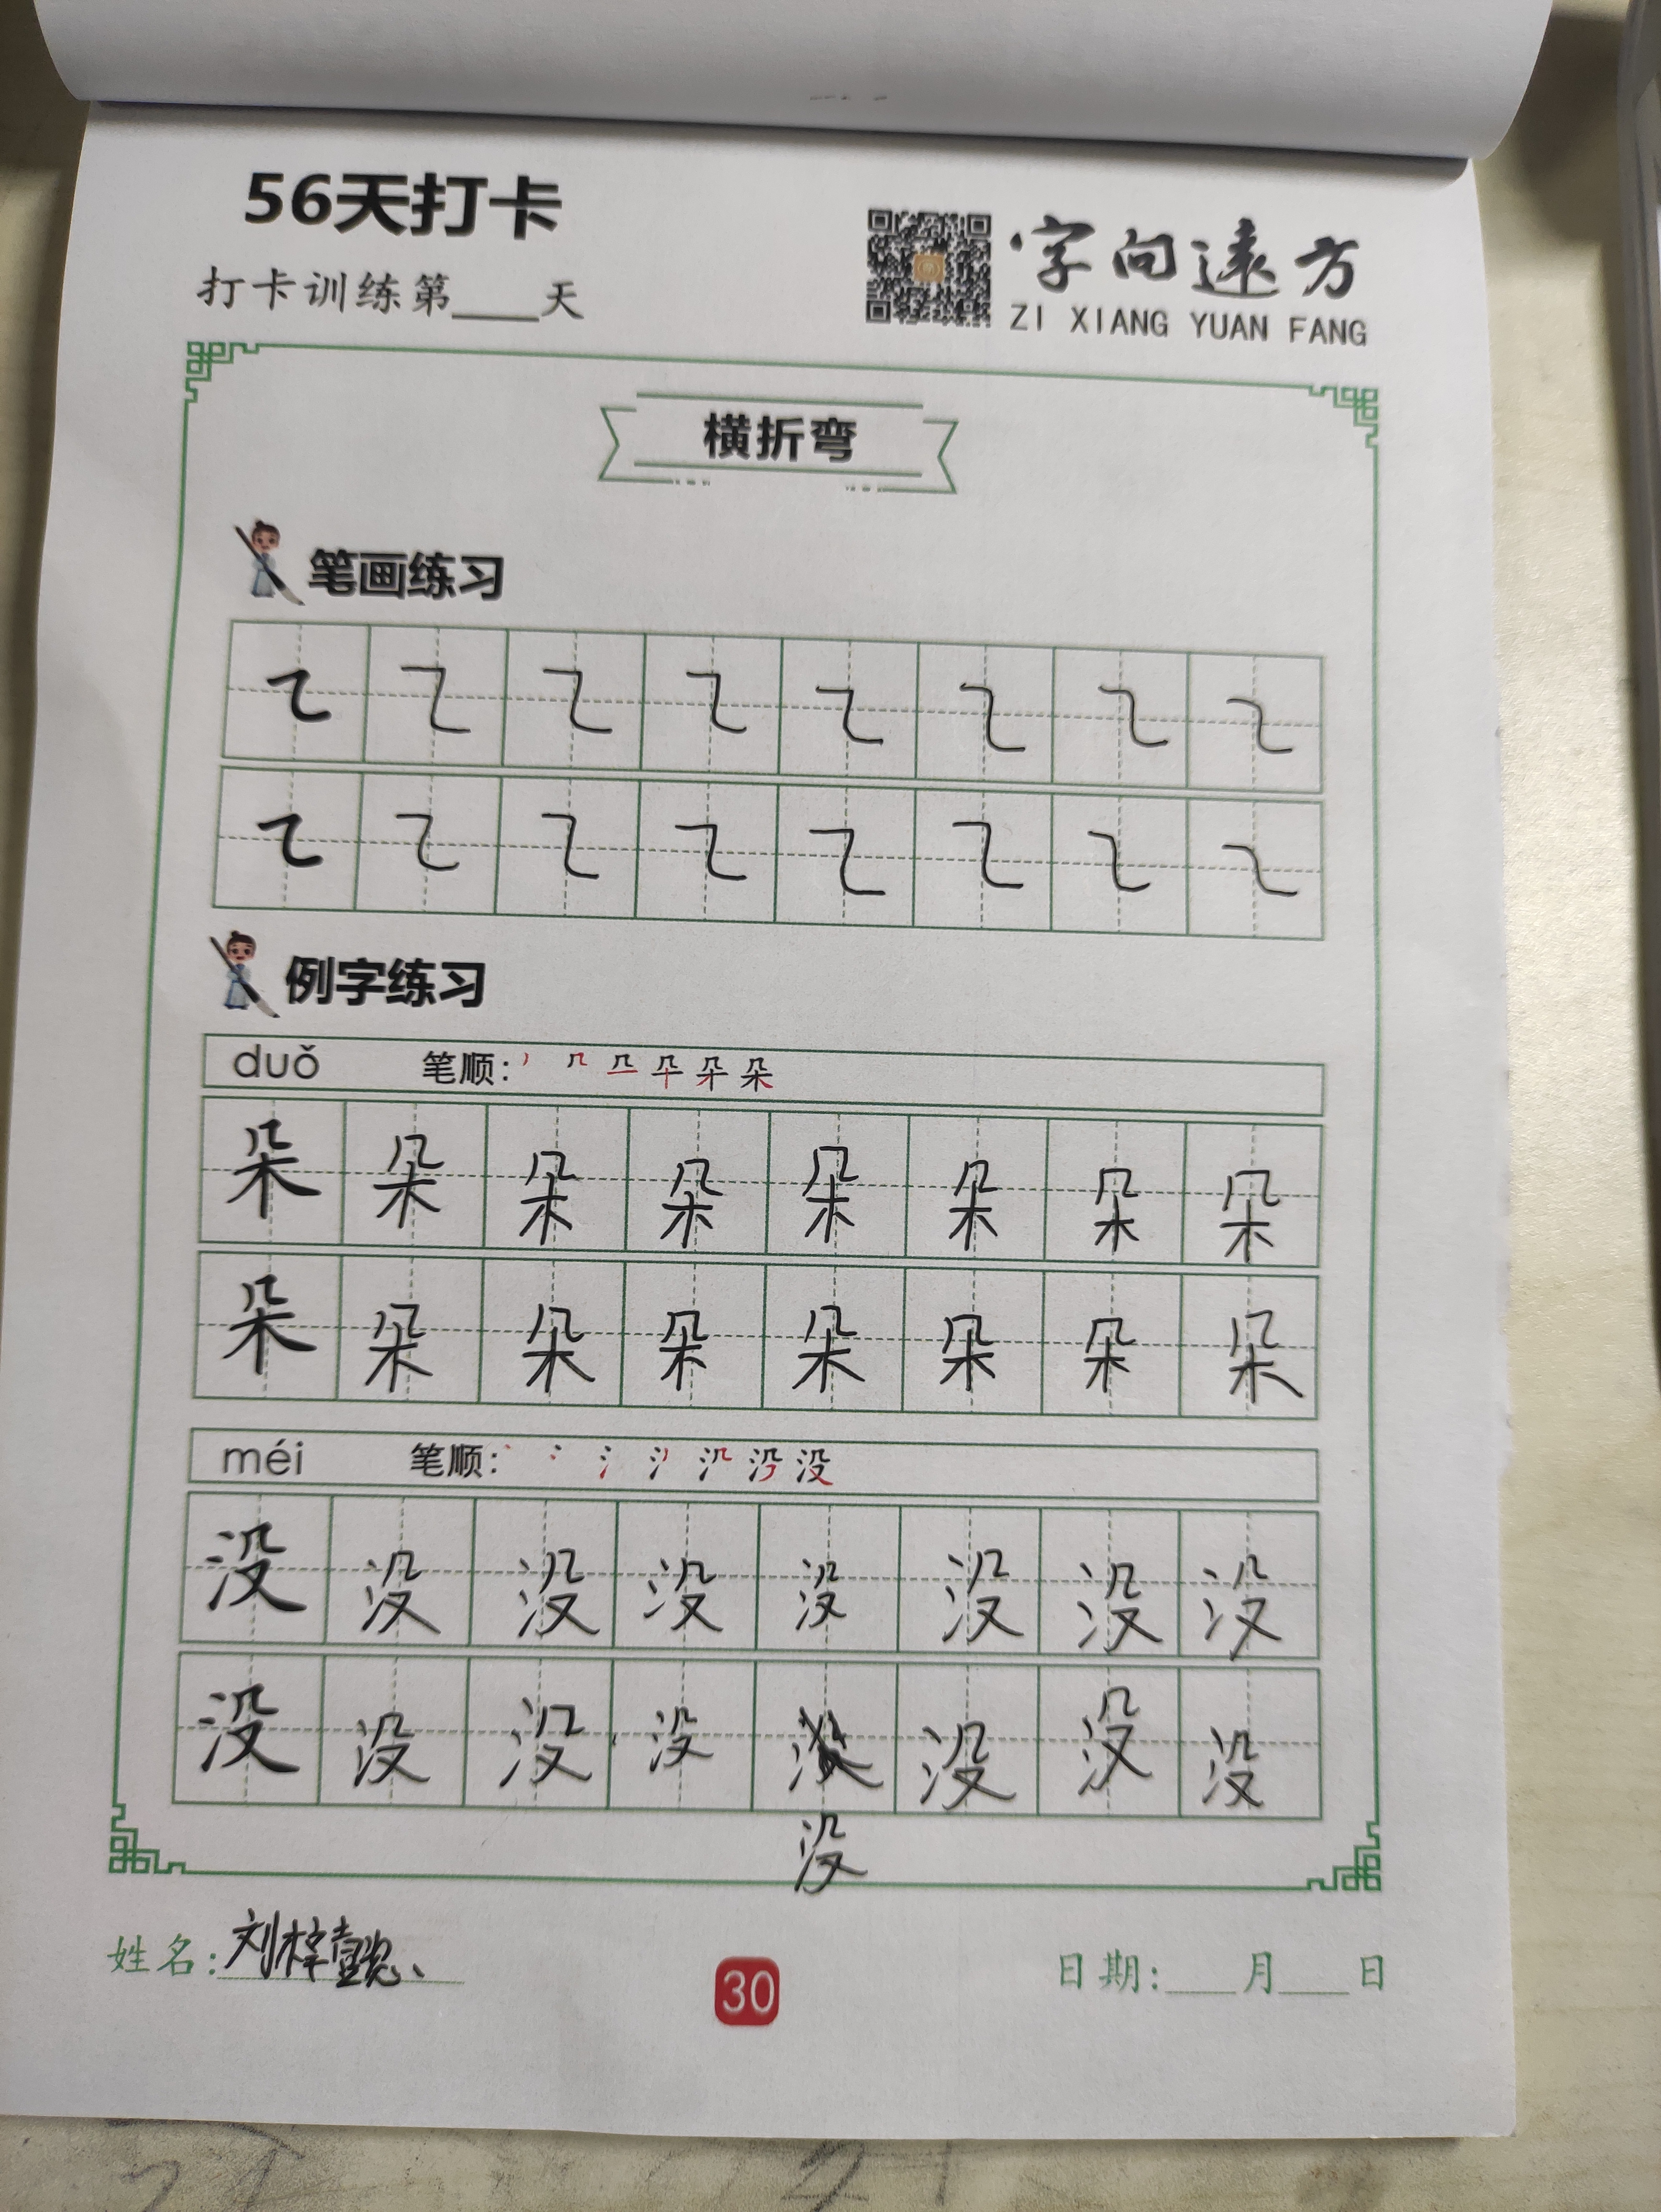 56天打卡
打卡训练第____天
字向远方
ZI XIANG YUAN FANG
横折弯
笔画练习
㇍ ㇍ ㇍ ㇍ ㇍ ㇍ ㇍ ㇍
㇍ ㇍ ㇍ ㇍ ㇍ ㇍ ㇍ ㇍
例字练习
duǒ 笔顺：
朵 朵 朵 朵 朵 朵 朵 朵
朵 朵 朵 朵 朵 朵 朵 朵
méi 笔顺：
没 没 没 没 没 没 没 没
没 没 没 没 没 没 没
没
姓名：刘梓懿
30
日期：___月___日